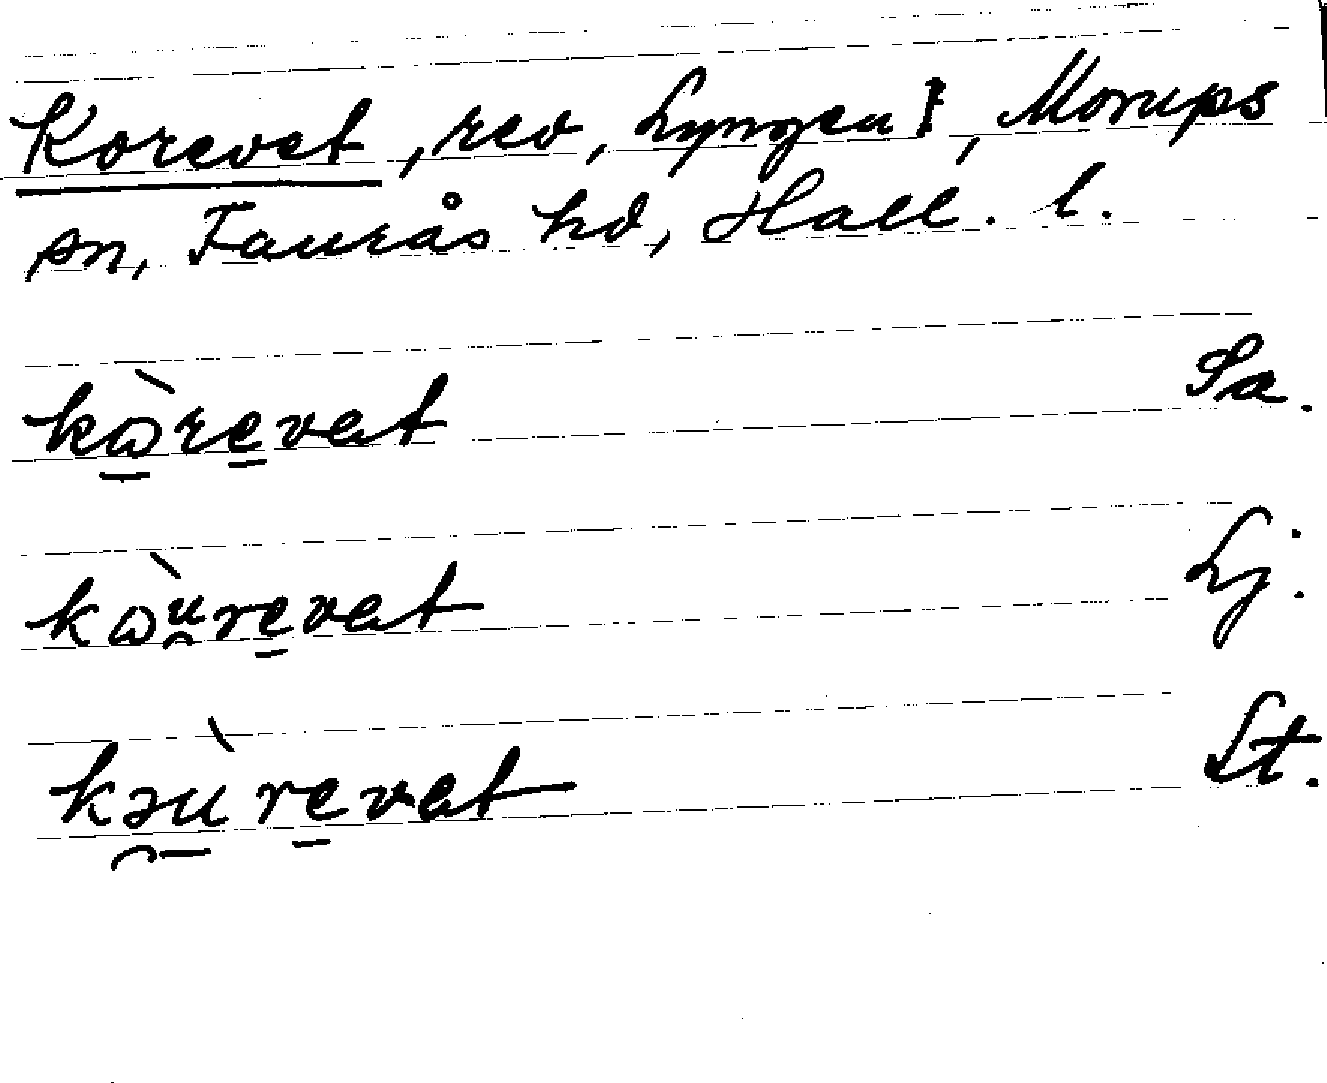 Korevet, rev, Lyngen 1, Morups
sn, Faurås hd, Hall. l.
kὼ̱re̱vet Sa.
kὼu̯re̱vet Lj.
kə̯ù̱re̱vet St.